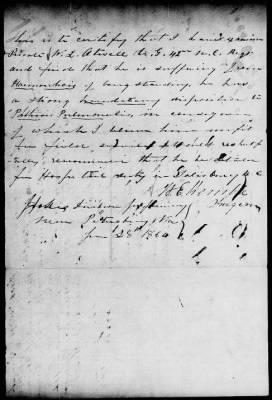 This is to certify that I have examined
Private W. L. Atwell Co. G. 48th N.C. Regt
and find that he is suffering from
Haemorrhois of long standing, he has
a strong hereditary disposition to
Pthisis Pulmonalis, in consequence
of which I believe him unfit
for field
recommend that he be detailed
for Hospital duty in Salisbury N C
Surgeon
Division Infirmary
near Petersburg Va
28th 1864